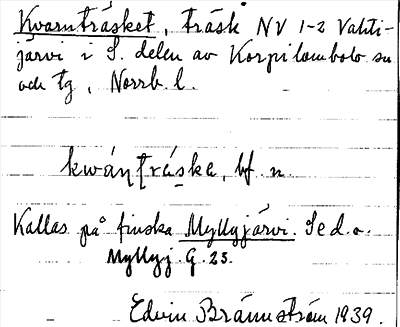 Kvarnträsket, träsk NV 1-2 Vahti-
järvi i S. delen av Korpilombolo sn
och tg, Norrb. l.
kwán̥träske, bf. n.
Kallas på finska Myllyjärvi. Se d.o.
Myllyj. G. 23.
Edvin Brännström 1939.